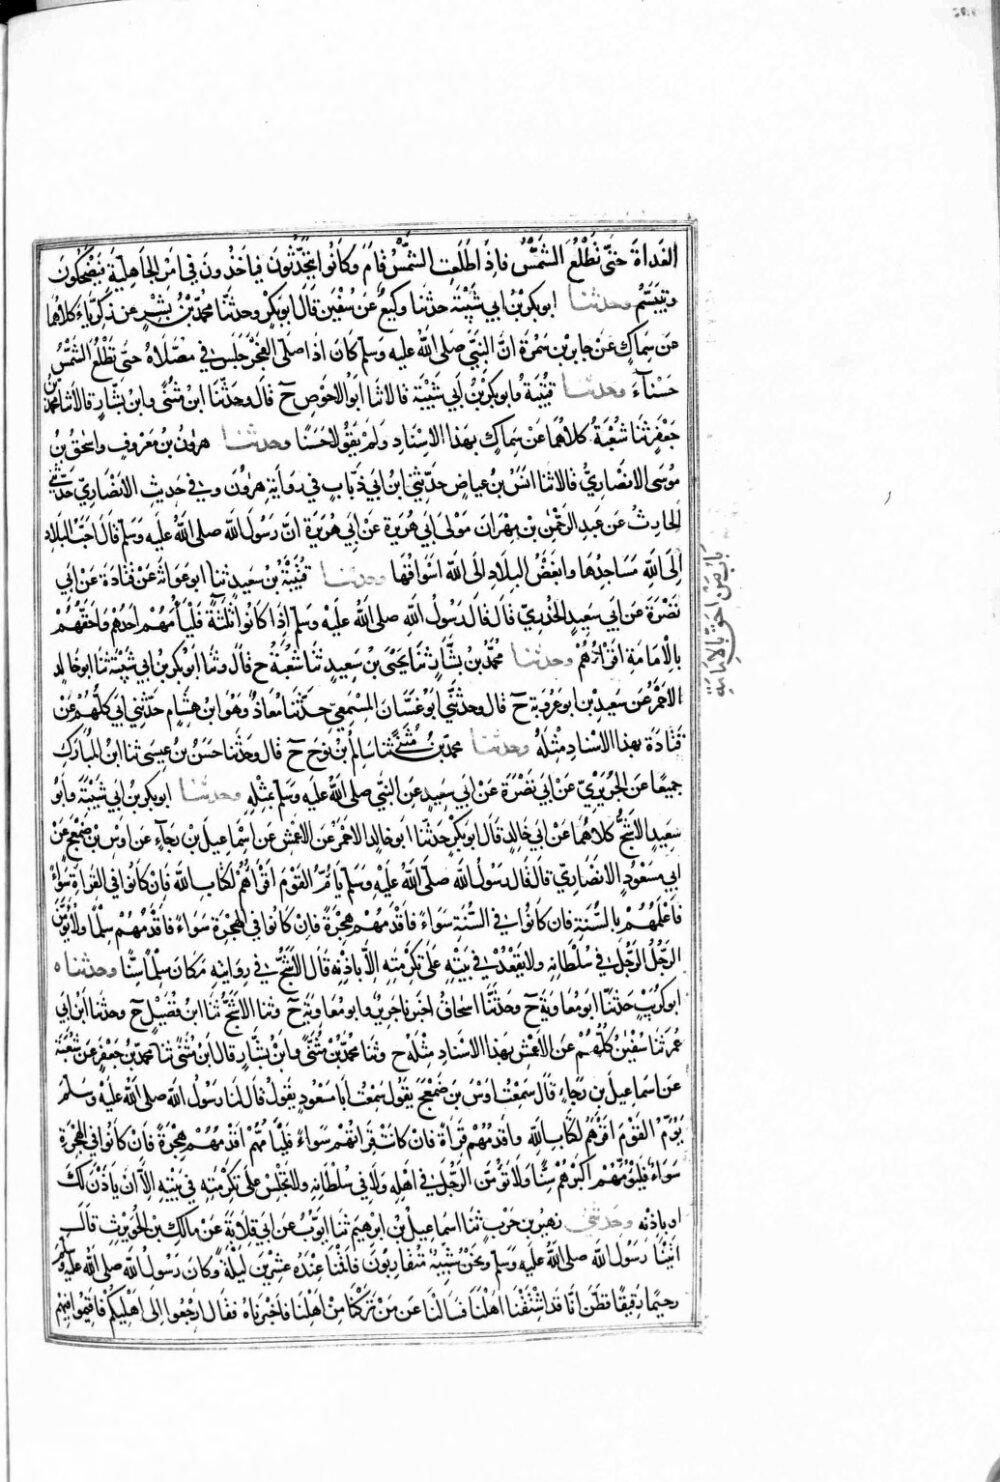 الغداة حتى تطلع الشمس فاذا طلعت الشمس قام وكانوا يتحدثون فياخذون في امر الجاهلية فيضحكون
ويتبسم وحدثنا ابوبكر بن ابي شيبة حدثنا وكيع عن سفين قال ابوبكر وحدثنا محمد بن بشر عن زكرياء كلاهما
عن سماك عن جابر بن سمرة ان النبي صلى الله عليه وسلم كان اذا صلى الفجر جلس في مصلاه حتى تطلع الشمس
حسناء وحدثنا قتيبة وابوبكر بن ابي شيبة قالا ثنا ابوالاحوص ح قال وحدثنا ابن مثنى وابن بشار قالا ثنا محمد بن
جعفر ثنا شعبة كلاهما عن سماك بهذا الاسناد ولم يقولا حسنا وحدثنا هرون بن معروف واسحق بن
موسى الانصاري قالا ثنا انس بن عياض حدثني ابن ابي ذباب في رواية هرون وفي حديث الانصاري حدثني
الحارث عن عبد الرحمن بن مهران مولى ابي هريرة عن ابي هريرة ان رسول الله صلى الله عليه وسلم قال احب البلاد
الى الله مساجدها وابغض البلاد الى الله اسواقها وحدثنا قتيبة بن سعيد ثنا ابوعوانة عن قتادة عن ابي
نضرة عن ابي سعيد الخدري قال قال رسول الله صلى الله عليه وسلم اذا كانوا ثلثة فليأمهم احدهم واحقهم
بالامامة اقرأهم وحدثنا محمد بن بشار ثنا يحيى بن سعيد ثنا شعبة ح قال وثنا ابوبكر بن ابي شيبة ثنا ابوخالد
الاحمر عن سعيد بن ابوعروبة ح قال وحدثني ابوغسان المسمعي حدثنا معاذ وهو ابن هشام حدثني ابي كلهم عن
قتادة بهذا الاسناد مثله وحدثنا محمد بن مثنى ثنا سالم بن نوح ح قال وحدثنا حسن بن عيسى ثنا ابن المبارك
جميعا عن الجريري عن ابي نضرة عن ابي سعيد عن النبي صلى الله عليه وسلم بمثله وحدثنا ابوبكر بن ابي شيبة وابو
سعيد الاشج كلاهما عن ابي خالد قال ابوبكر حدثنا ابوخالد الاحمر عن الاعمش عن اسماعيل بن رجاء عن اوس بن ضمعج عن
ابي مسعود الانصاري قال قال رسول الله صلى الله عليه وسلم يأم القوم اقرأهم لكتاب الله فان كانوا في القراة سواء
فاعلمهم بالسنة فان كانوا في السنة سواء فاقدمهم هجرة فان كانوا في الهجرة سواء فاقدمهم سلما ولا يؤمن
الرجل الرجل في سلطانه ولا يقعد في بيته على تكرمته الا باذنه قال الاشج في روايته مكان سلما سنا وحدثناه
ابوكريب حدثنا ابومعاوية ح وحدثنا اسحاق اخبرنا جرير وابومعاوية ح وثنا الاشج ثنا ابن فضيل ح وحدثنا ابن ابي
عمر ثنا سفين كلهم عن الاعمش بهذا الاسناد مثله ح وثنا محمد بن مثنى وابن بشار قال ابن مثنى ثنا محمد بن جعفر عن شعبة
عن اسماعيل بن رجاء قال سمعت اوس بن ضمعج يقول سمعت ابا مسعود يقول قال لنا رسول الله صلى الله عليه وسلم
يؤم القوم اقرأهم لكتاب الله واقدمهم قراة فان كانت قراتهم سواء فليأمهم اقدمهم هجرة فان كانوا في الهجرة
سواء فليؤمهم اكبرهم سنا ولا تؤمن الرجل في اهله ولا في سلطانه ولا تجلس على تكرمته في بيته الا ان ياذن لك
او باذنه وحدثني زهير بن حرب ثنا اسماعيل بن ابرهيم ثنا ايوب عن ابي قلابة عن مالك بن الحويرث قال
اتينا رسول الله صلى الله عليه وسلم ونحن شيبة متقاربون فاقمنا عنده عشرين ليلة وكان رسول الله صلى الله عليه وسلم
رحيما رقيقا فظن انا قد اشتقنا اهلنا فسالنا عن من تركنا من اهلنا فاخبرناه فقال ارجعوا الى اهليكم فاقيموا فيهم
باب من احق بالامامة